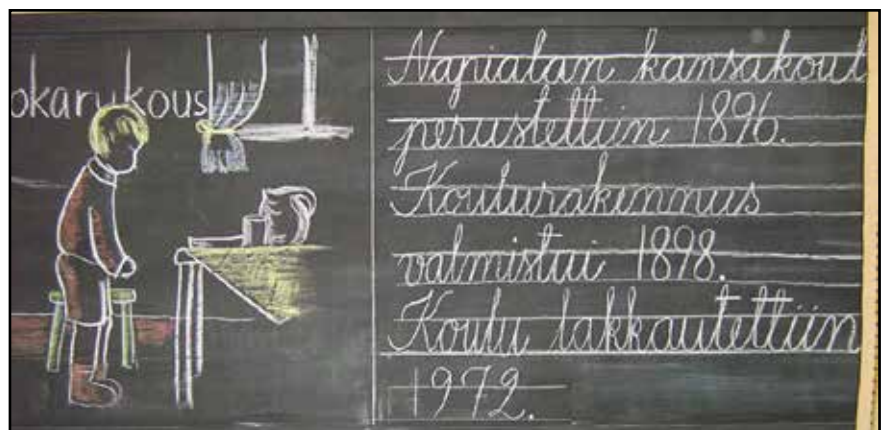 okarukous
Napialan kansakoul
perustettiin 1896.
Koulurakennus
valmistui 1898.
Koulu lakkautettiin
1972.